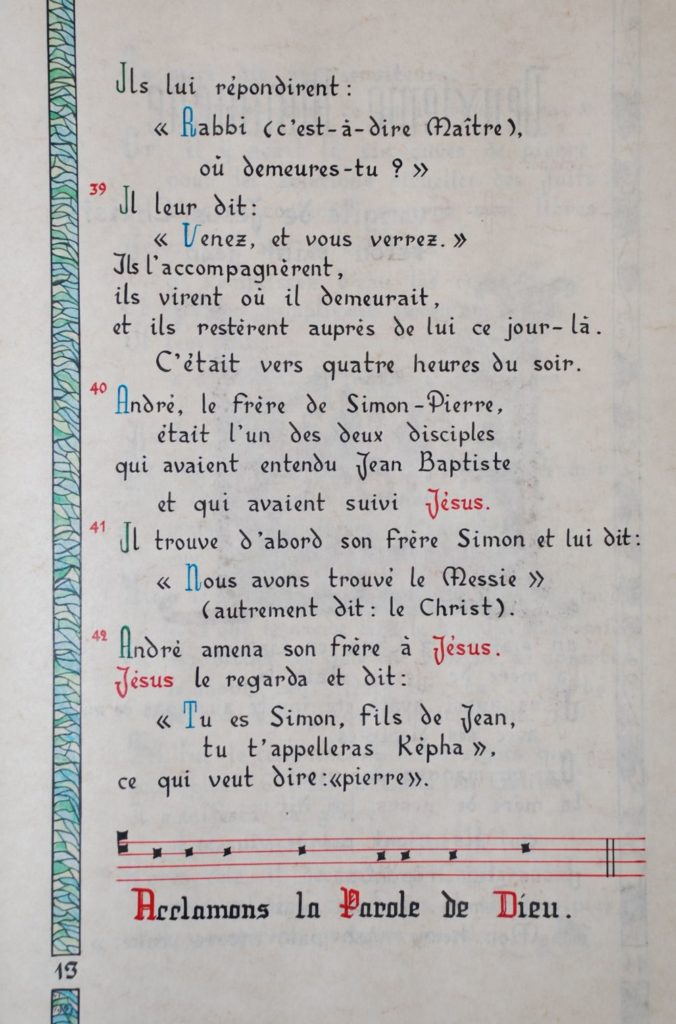 Ils lui répondirent :
« Rabbi (c'est-à-dire Maître),
où demeures-tu ? »
39
Il leur dit :
« Venez, et vous verrez. »
Ils l'accompagnèrent,
ils virent où il demeurait,
et ils restèrent auprès de lui ce jour-là.
C'était vers quatre heures du soir.
40
André, le frère de Simon-Pierre,
était l'un des deux disciples
qui avaient entendu Jean Baptiste
et qui avaient suivi Jésus.
41
Il trouve d'abord son frère Simon et lui dit :
« Nous avons trouvé le Messie »
(autrement dit : le Christ).
42
André amena son frère à Jésus.
Jésus le regarda et dit :
« Tu es Simon, fils de Jean,
tu t'appelleras Képha »,
ce qui veut dire : «pierre».
Acclamons la Parole de Dieu.
13